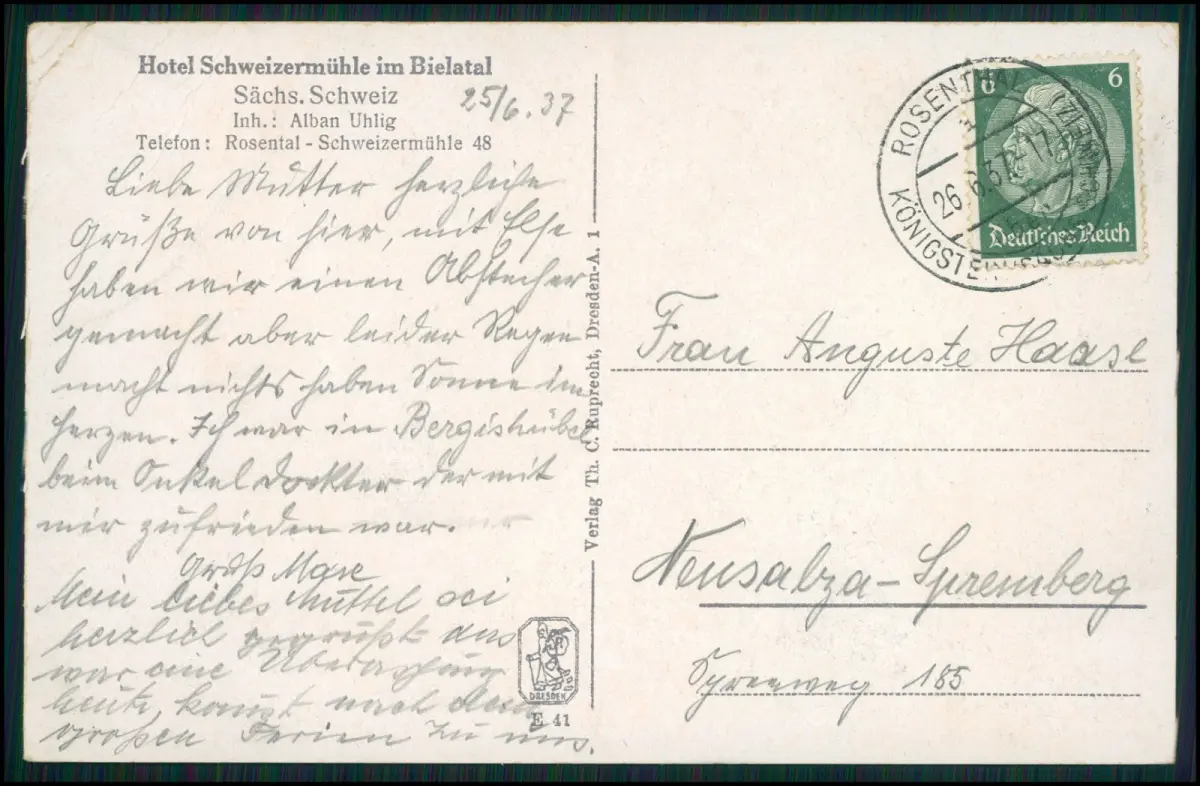 Hotel Schweizermühle im Bielatal
Sächs. Schweiz
25/6.37
Inh.: Alban Uhlig
Telefon: Rosental - Schweizermühle 48
Liebe Mutter herzliche
Grüße von hier, mit Else
haben wir einen Abstecher
gemacht aber leider Regen
macht nichts haben Sonne im
Herzen. Ich war in Bergishübel
beim Onkel Dockter der mit
mir zufrieden war.
Gruß
Mein liebes Muttel sei
herzlich gegrüßt das
war eine Überaschung
heute, komst nach den
großen Ferien zu uns.
Verlag Th. C. Ruprecht, Dresden-A. 1
DRESDEN
E 41
ROSENTHAL
KÖNIGSTEIN
26.6.37-17
6 6
Deutsches Reich
Frau Auguste Haase
Neusalza-Spremberg
Spreeweg 185